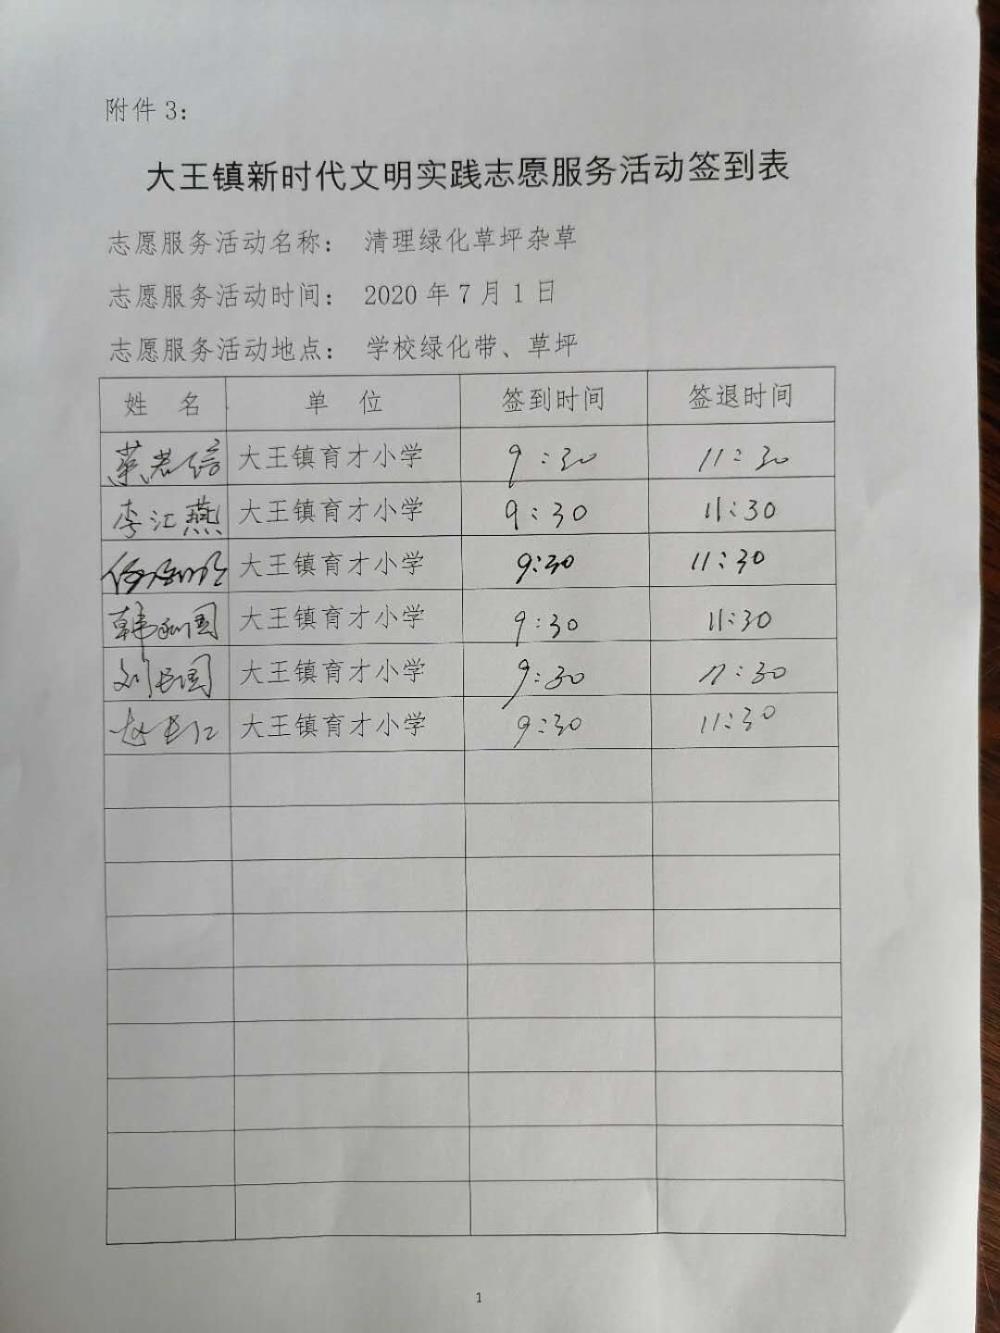 附件 3：
大王镇新时代文明实践志愿服务活动签到表
志愿服务活动名称： 清理绿化草坪杂草
志愿服务活动时间： 2020 年 7 月 1 日
志愿服务活动地点： 学校绿化带、草坪
姓 名 单 位 签到时间 签退时间
大王镇育才小学 9:30 11:30
李汇燕 大王镇育才小学 9:30 11:30
大王镇育才小学 9:30 11:30
韩和国 大王镇育才小学 9:30 11:30
刘长国 大王镇育才小学 9:30 11:30
赵长仁 大王镇育才小学 9:30 11:30
1